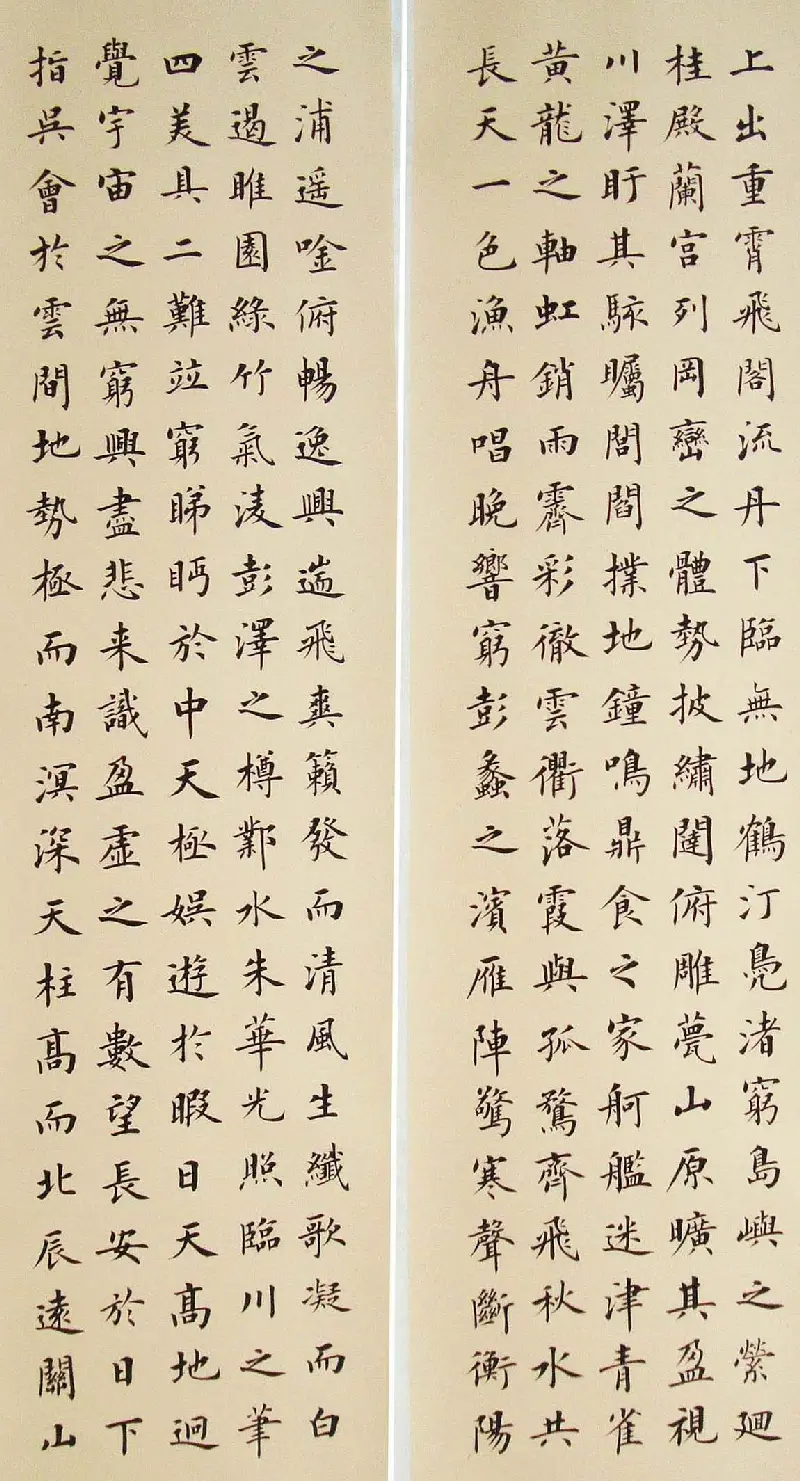 上出重霄飛閣流丹下臨無地鶴汀鳧渚窮島嶼之縈廻
桂殿蘭宮列岡巒之體勢披繡闥俯雕甍山原曠其盈視
川澤盱其駭矚閭閻撲地鐘鳴鼎食之家舸艦迷津青雀
黃龍之軸虹銷雨霽彩徹雲衢落霞與孤鶩齊飛秋水共
長天一色漁舟唱晚響窮彭蠡之濱雁陣驚寒聲斷衡陽
之浦遥唫俯暢逸興遄飛爽籟發而清風生纖歌凝而白
雲遏睢園綠竹氣淩彭澤之樽鄴水朱華光照臨川之筆
四美具二難竝窮睇眄於中天極娱遊於暇日天高地迥
覺宇宙之無窮興盡悲来識盈虛之有數望長安於日下
指吳會於雲間地勢極而南溟深天柱高而北辰遠關山